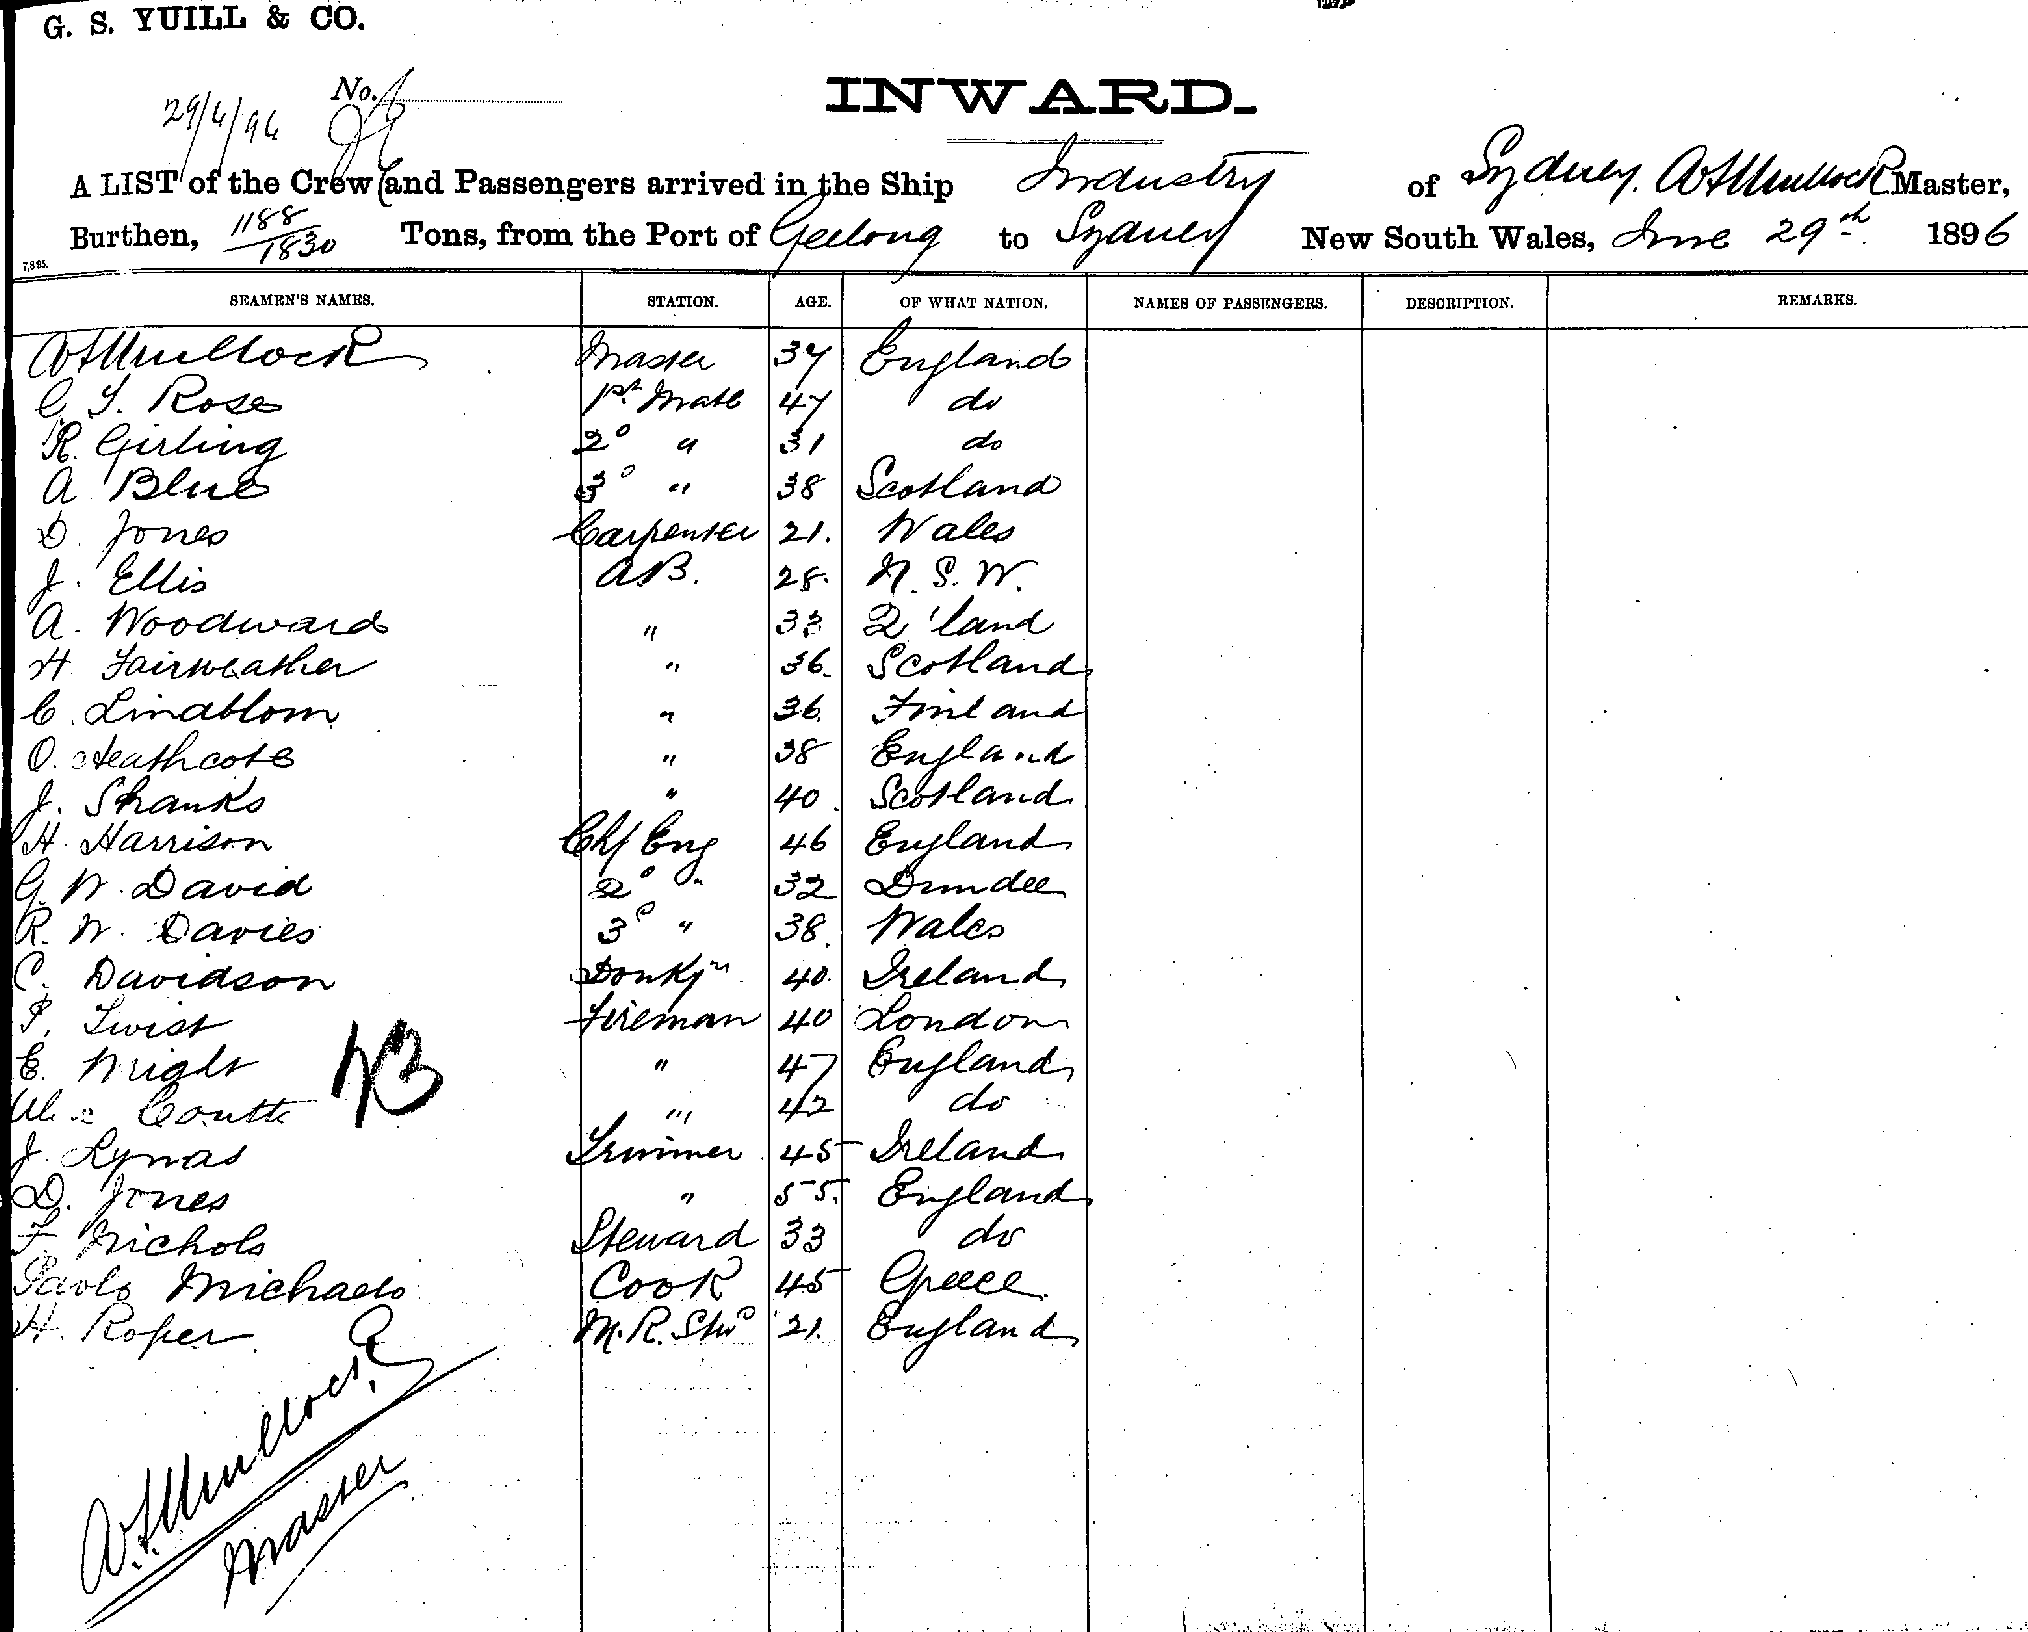 G. S. YUILL & CO.
INWARD.
29/6/96 No.
A LIST of the Crew and Passengers arrived in the Ship Industry of Sydney. A F Mullock Master,
Burthen, 1188/1830 Tons, from the Port of Geelong to Sydney New South Wales, June 29th 1896
7,8 95.
SEAMEN'S NAMES. STATION. AGE. OF WHAT NATION. NAMES OF PASSENGERS. DESCRIPTION. REMARKS.
A F Mullock Master 37 England
C. T. Rose 1st Mate 47 do
R. Girling 2o " 31 do
A Blue 3o " 38 Scotland
D. Jones Carpenter 21. Wales
J. Ellis AB. 28. N. S. W.
A. Woodward " 33 Q'land
H Fairweather " 36. Scotland
C. Lindblom " 36. Finland
O. Heathcote " 38 England
J. Shanks " 40. Scotland
H. Harrison Chf Eng 46 England
G. W. David 2o " 32 Dundee
R. W. Davies 3o " 38. Wales
C. Davidson Donkyn 40. Ireland
P. Twist Fireman 40 London
E. Wright " 47 England
Coutts " 42 do
J. Lynas Trimmer 45 Ireland
D. Jones " 55. England
F. Nichols Steward 33 do
Paolo Michaelo Cook 45 Greece
H. Roper M. R. Stwd 21. England
23
A. F. Mullock
Master